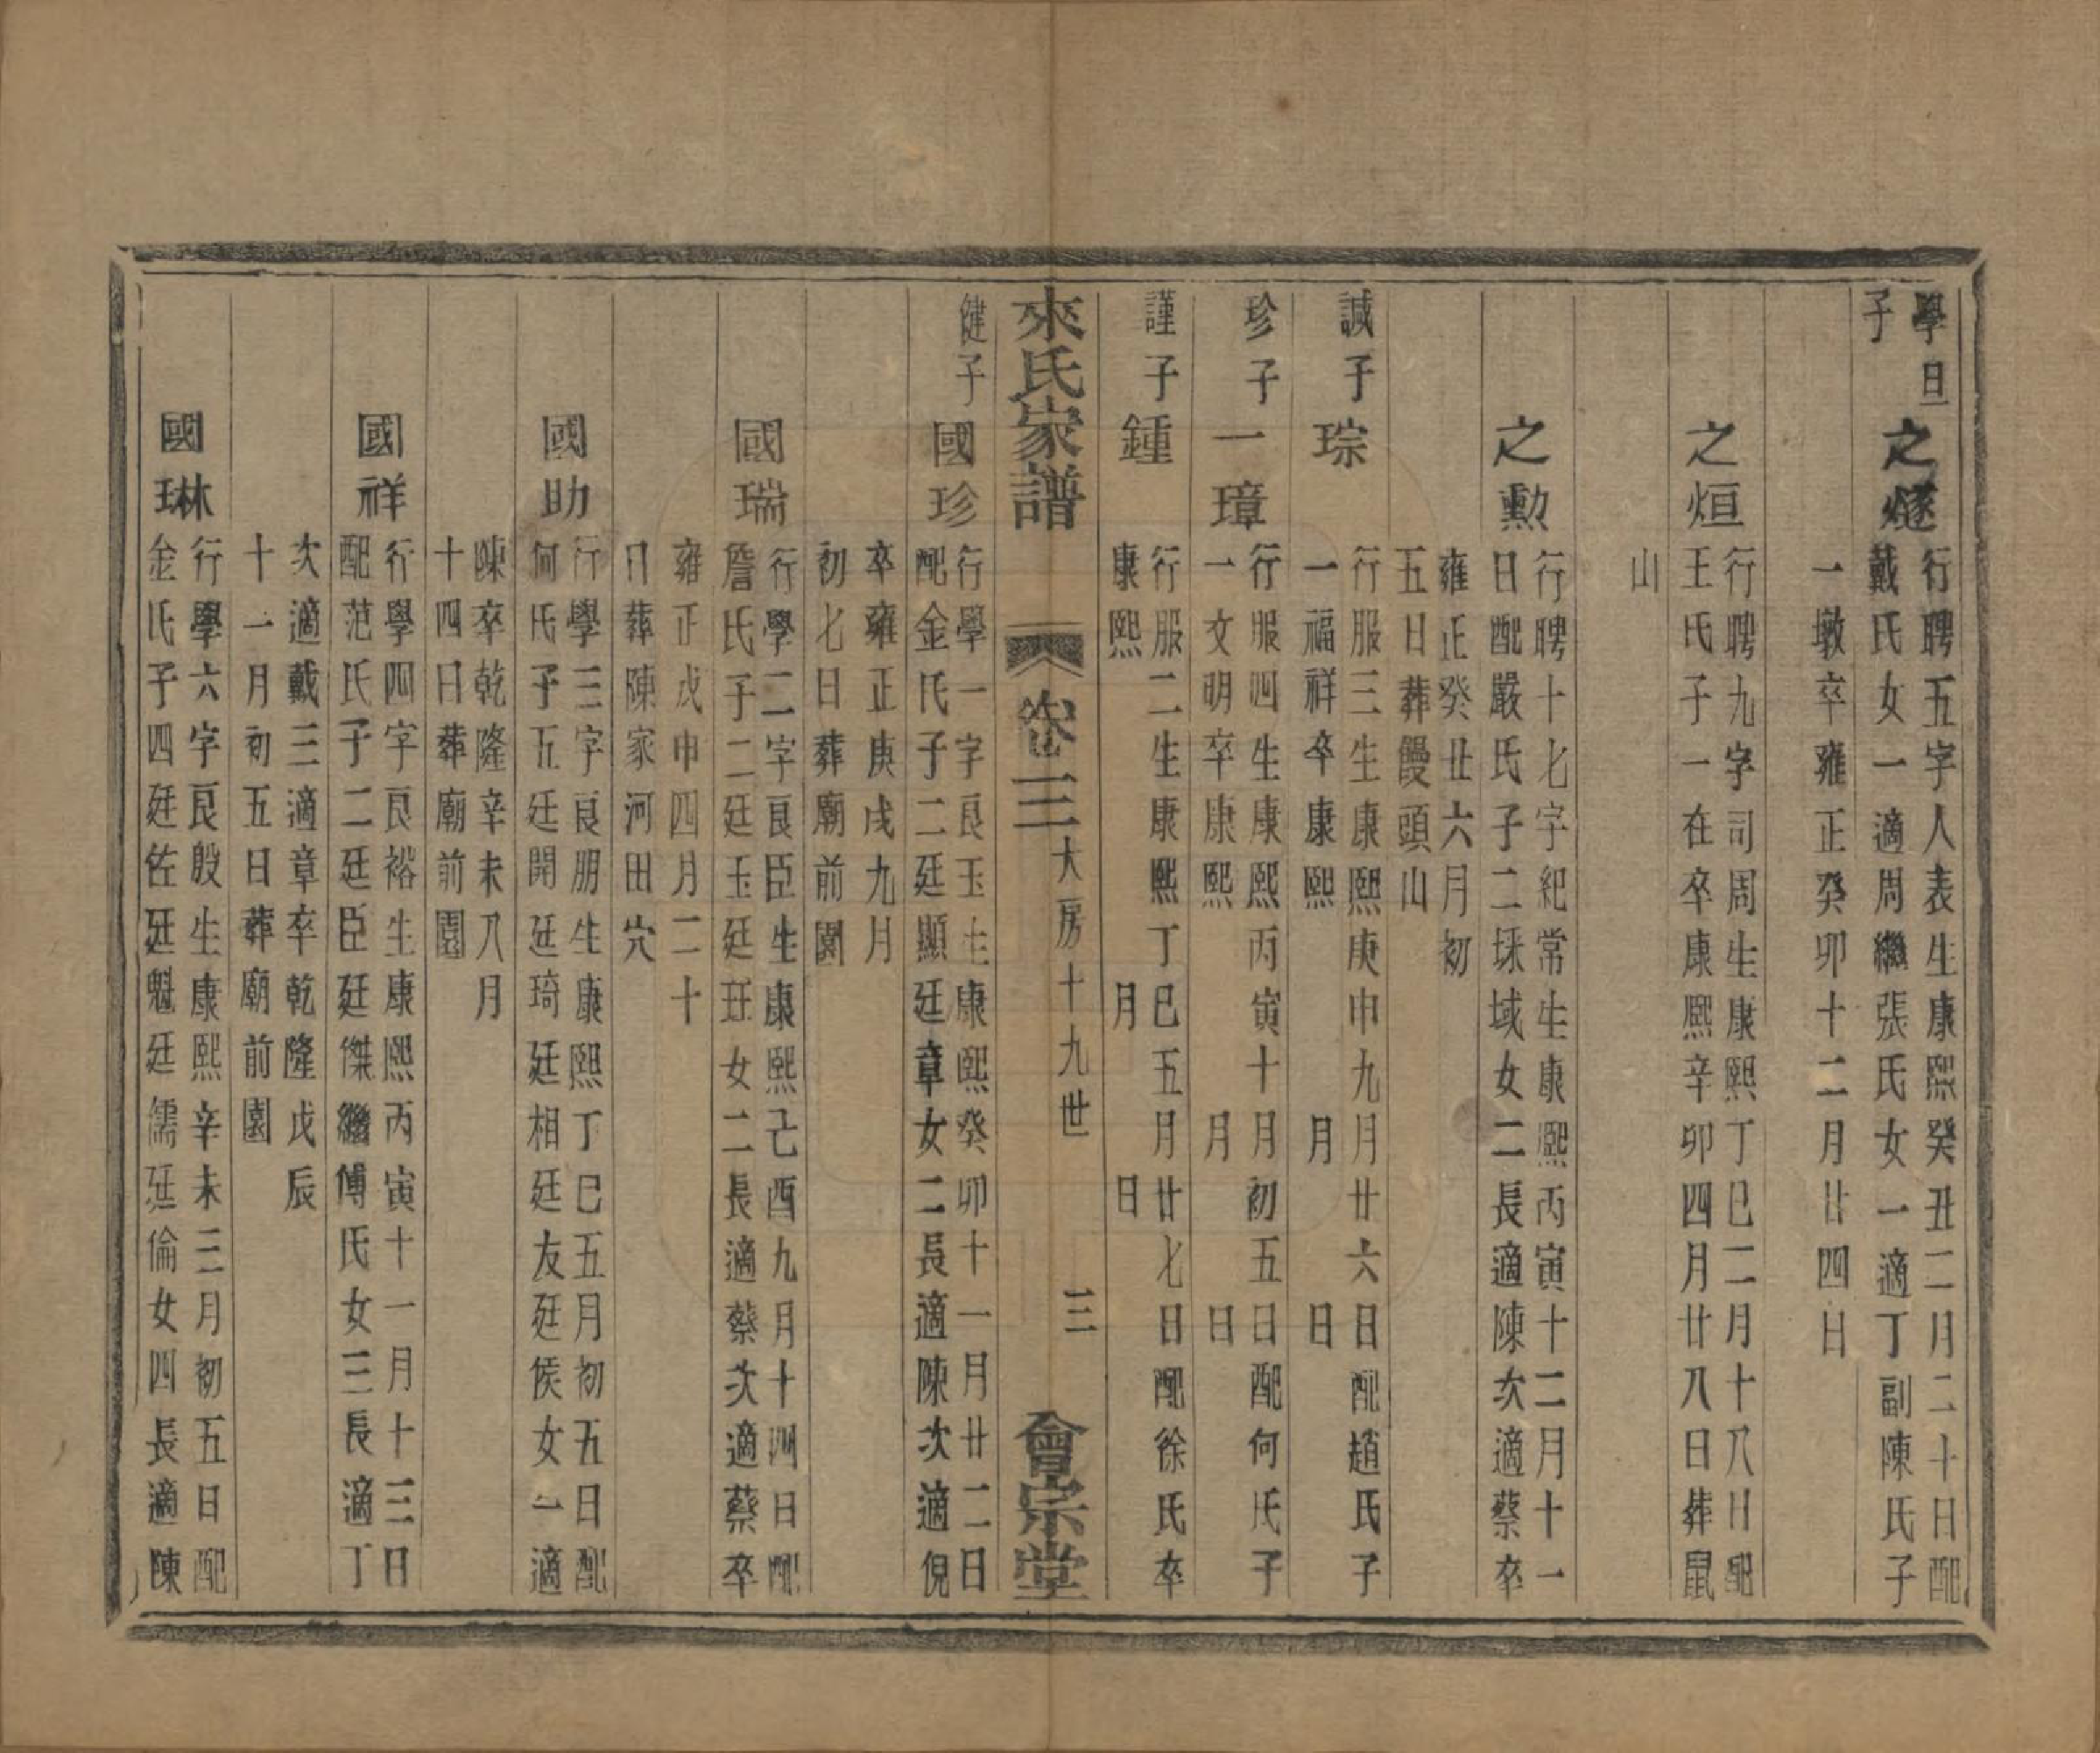 學旦
子
之燧
行聘五字人表生康熙癸丑二月二十日配
戴氏女一適周繼張氏女一適丁副陳氏子
一墩卒雍正癸卯十二月廿四日
之烜
行聘九字司周生康熙丁巳二月十八日配
王氏子一在卒康熙辛卯四月廿八日葬鼠
山
之勲
行聘十七字紀常生康熙丙寅十二月十一
日配嚴氏子二埰域女二長適陳次適蔡卒
雍正癸丑六月初
五日葬饅頭山
誠子
琮
行服三生康熙庚申九月廿六日配趙氏子
一福祥卒康熙 月 日
珍子
一璋
行服四生康熙丙寅十月初五日配何氏子
一文明卒康熙 月 日
謹子
鍾
行服二生康熙丁巳五月廿七日配徐氏卒
康熙 月 日
來氏家譜 卷三 大房十九世 三 會宗堂
健子
國珍
行學一字良玉生康熙癸卯十一月廿二日
配金氏子二廷顯廷章女二長適陳次適倪
卒雍正庚戌九月
初七日葬廟前園
國瑞
行學二字良臣生康熙己酉九月十四日配
詹氏子二廷玉廷玨女二長適蔡次適蔡卒
雍正戊申四月二十
日葬陳家河田穴
國助
行學三字良朋生康熙丁巳五月初五日配
何氏子五廷開廷琦廷相廷友廷侯女一適
陳卒乾隆辛未八月
十四日葬廟前園
國祥
行學四字良裕生康熙丙寅十一月十三日
配范氏子二廷臣廷傑繼傅氏女三長適丁
次適戴三適章卒乾隆戊辰
十一月初五日葬廟前園
國琳
行學六字良殷生康熙辛未三月初五日配
金氏子四廷佐廷魁廷儒廷倫女四長適陳